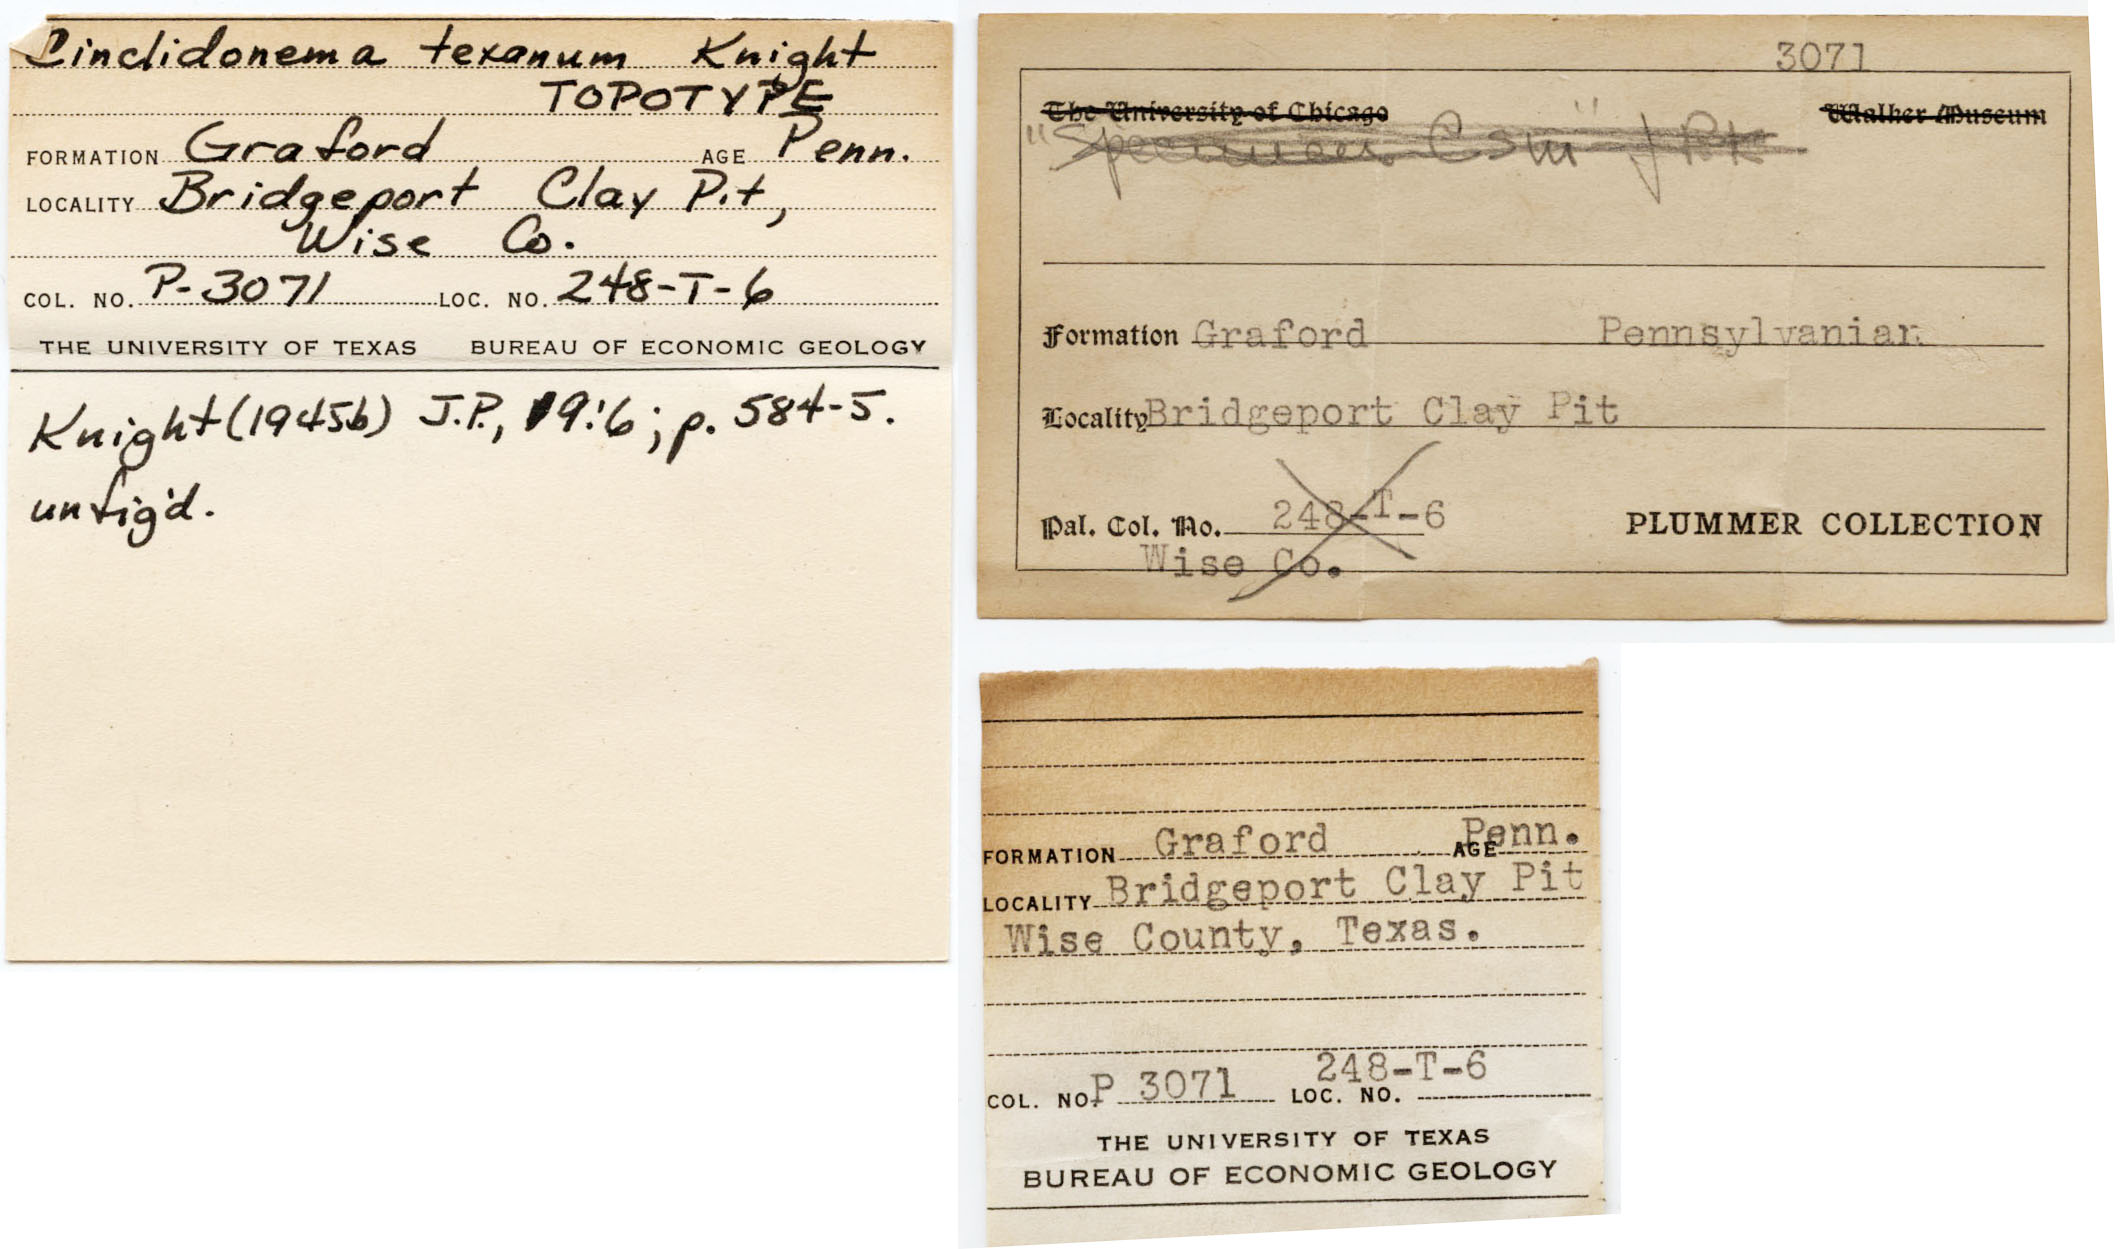 Cinclidonema texanum Knight
TOPOTYPE
FORMATION Graford AGE Penn.
LOCALITY Bridgeport Clay Pit,
Wise Co.
COL. NO. P-3071 LOC. NO. 248-T-6
THE UNIVERSITY OF TEXAS BUREAU OF ECONOMIC GEOLOGY
Knight (1945b) J.P., 19:6; p. 584-5.
unfig'd.
3071
The University of Chicago Walker Museum
"Specimens
Formation Graford Pennsylvanian
Locality Bridgeport Clay Pit
Pal. Col. No. 248-T-6 PLUMMER COLLECTION
Wise Co.
FORMATION Graford AGE Penn.
LOCALITY Bridgeport Clay Pit
Wise County, Texas.
COL. NO. P 3071 LOC. NO. 248-T-6
THE UNIVERSITY OF TEXAS
BUREAU OF ECONOMIC GEOLOGY